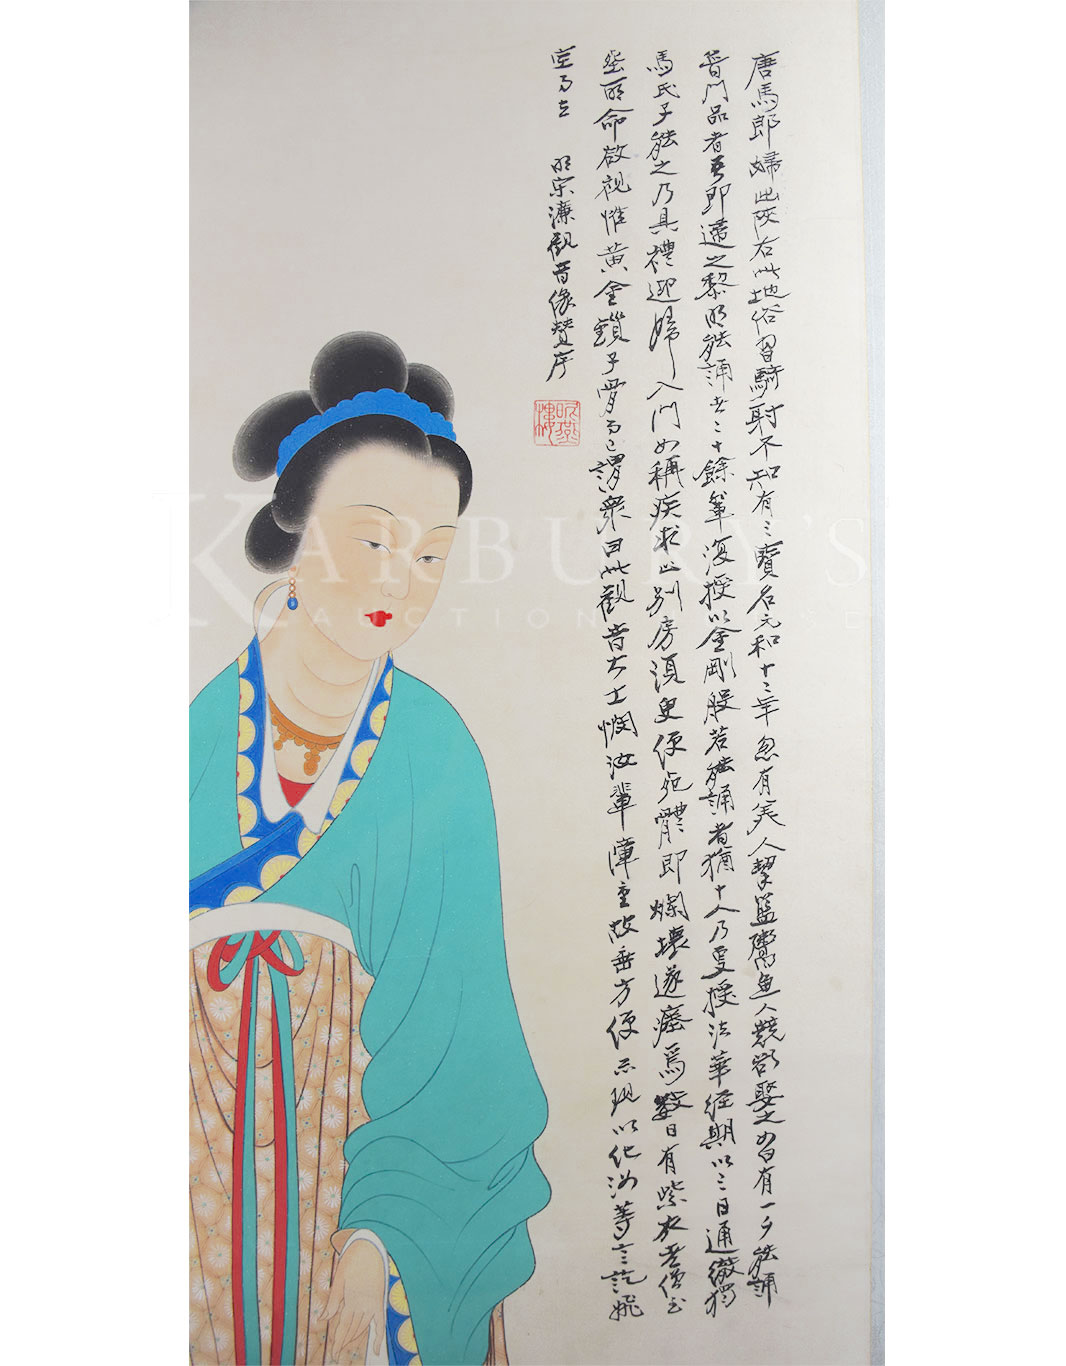 唐馬郎婦出陝右此地俗習騎射不知有三寶名元和十二年忽有美人挈籃鬻魚人競欲娶之曰有一夕能誦
普門品者吾即適之黎明能誦者二十餘輩復授以金剛般若能誦者猶十人乃更授法華經期以三日通徹獨
馬氏子能之乃具禮迎婦入門女稱疾求止別房須臾便死體即爛壞遂瘞焉數日有紫衣老僧至
塋所命啟視惟黃金鎖子骨而已謂衆曰此觀音大士憫汝輩障重故垂方便示現以化汝等言訖飛
空而去 明宋濂觀音像贊序
KARBURY'S
AUCTION